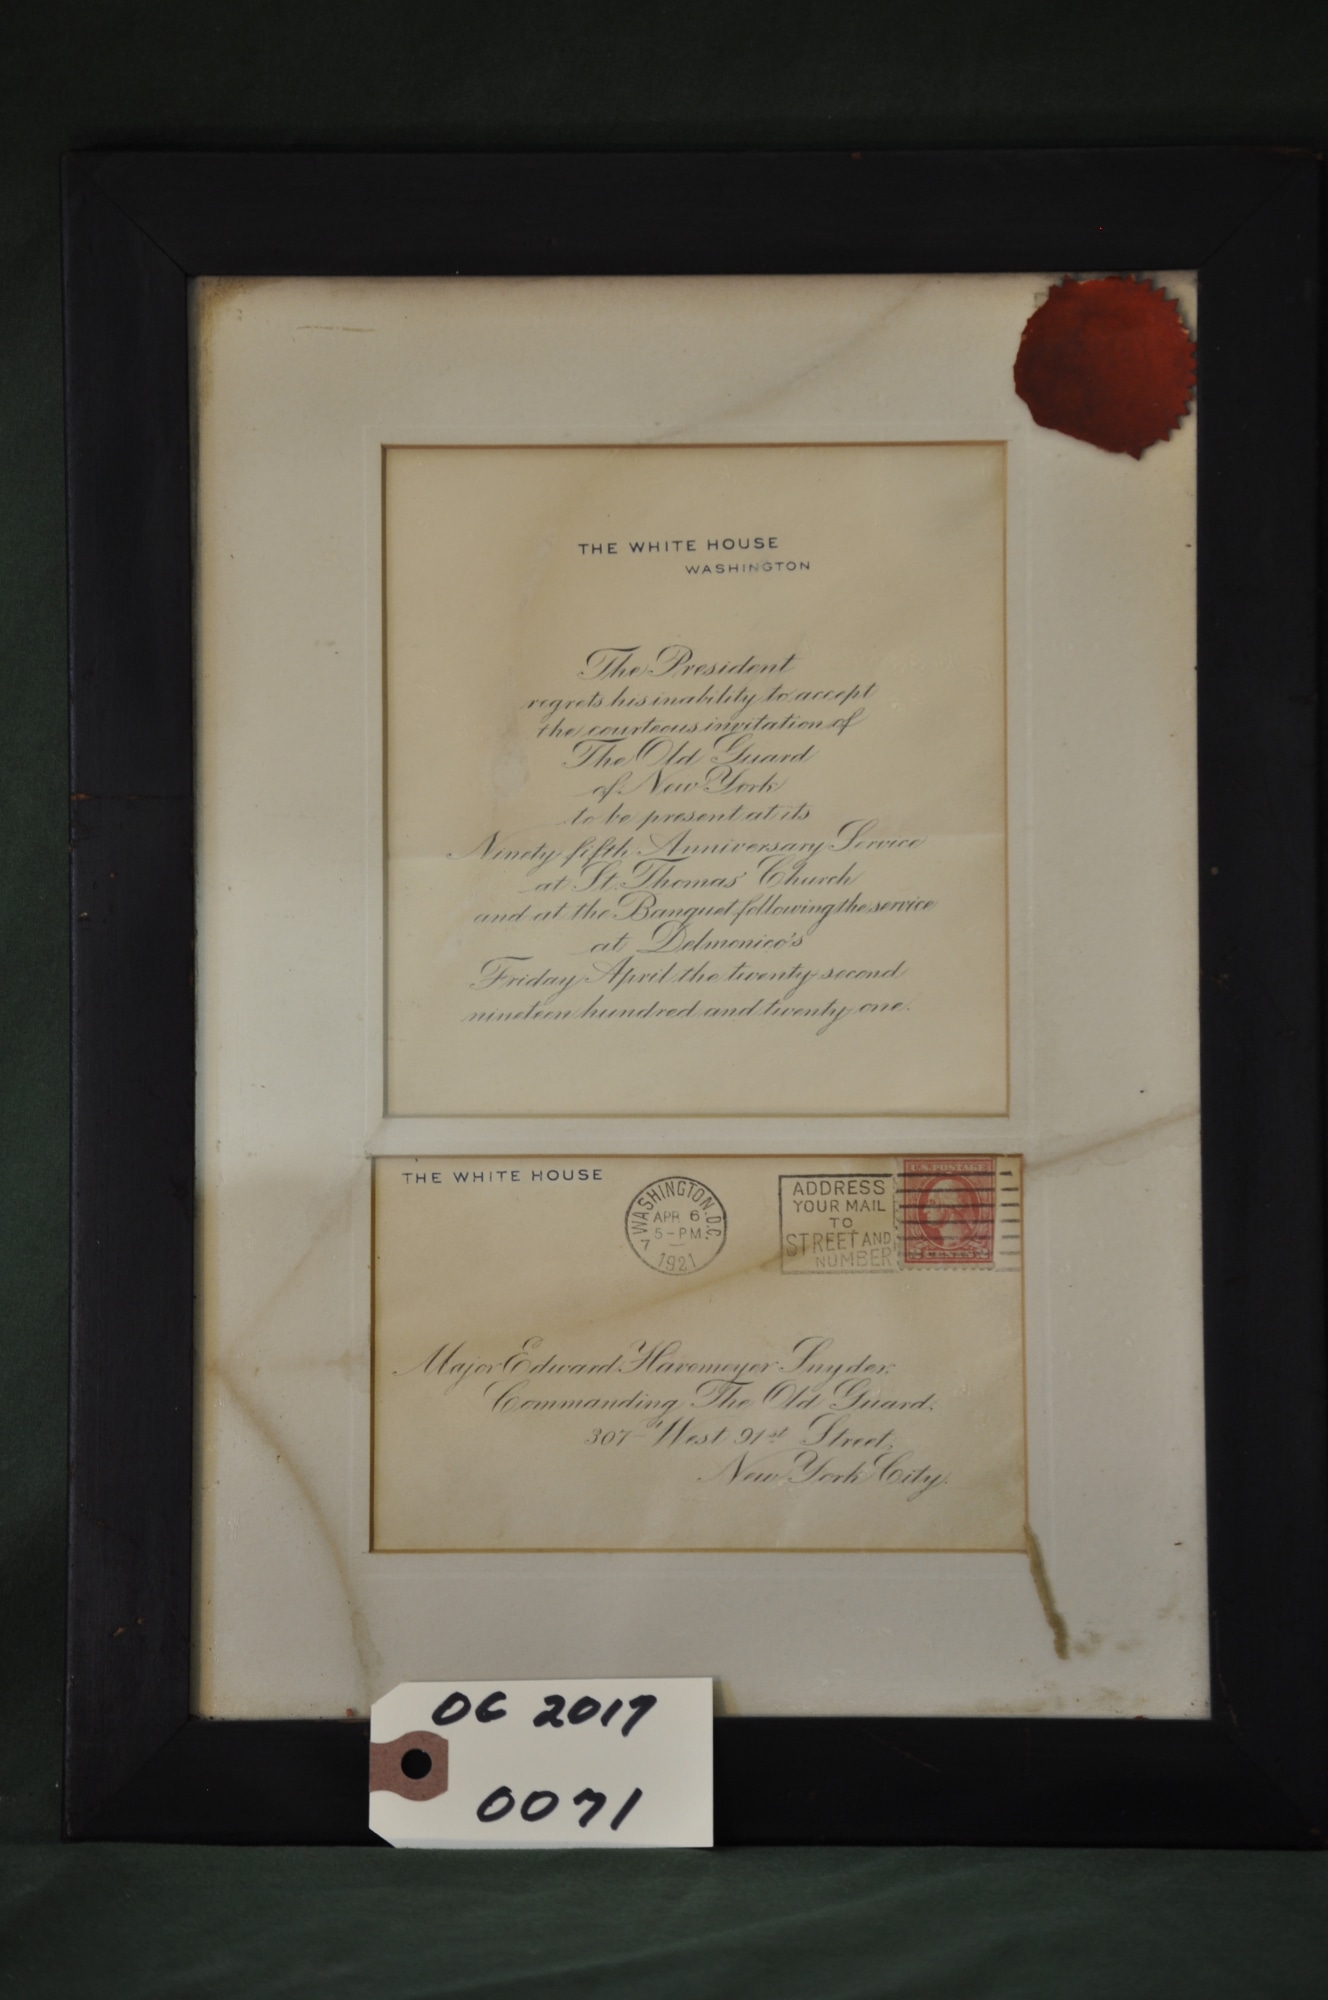 THE WHITE HOUSE
WASHINGTON
The President
regrets his inability to accept
the courteous invitation of
The Old Guard
of New York
to be present at its
Ninety fifth Anniversary Service
at St. Thomas' Church
and at the Banquet following the service
at Delmonico's
Friday April the twenty-second
nineteen hundred and twenty one.
THE WHITE HOUSE
WASHINGTON, D.C.
APR 6
5-PM
7
1921
ADDRESS
YOUR MAIL
TO
STREET AND
NUMBER
U.S. POSTAGE
2 CENTS 2
Major Edward Havemeyer Snyder,
Commanding The Old Guard,
307 West 91st Street,
New York City.
OG 2017
0071